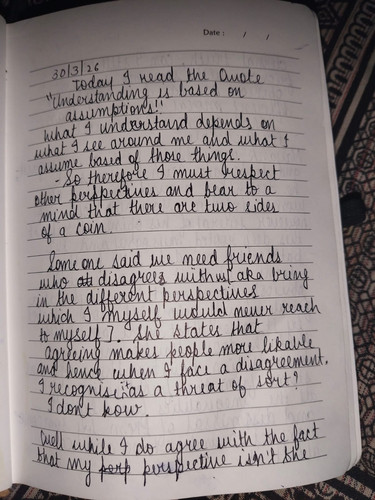 Date: / /
30/3/26
Today I read the Quote
"Understanding is based on
assumptions!!
What I understand depends on
what I see around me and what I
assume based of those things.
- So therefore I must respect
other perspectives and bear to a
mind that there are two sides
of a coin.
Some one said we need friends
who at disagrees with us aka bring
in the different perspectives
which I myself would never reach
to myself]. She states that
agreeing makes people more likable
and hence when I face a disagreement.
I recognise it as a threat of sort?
I don't kow.
Well while I do agree with the fact
that my perp perspective isn't the